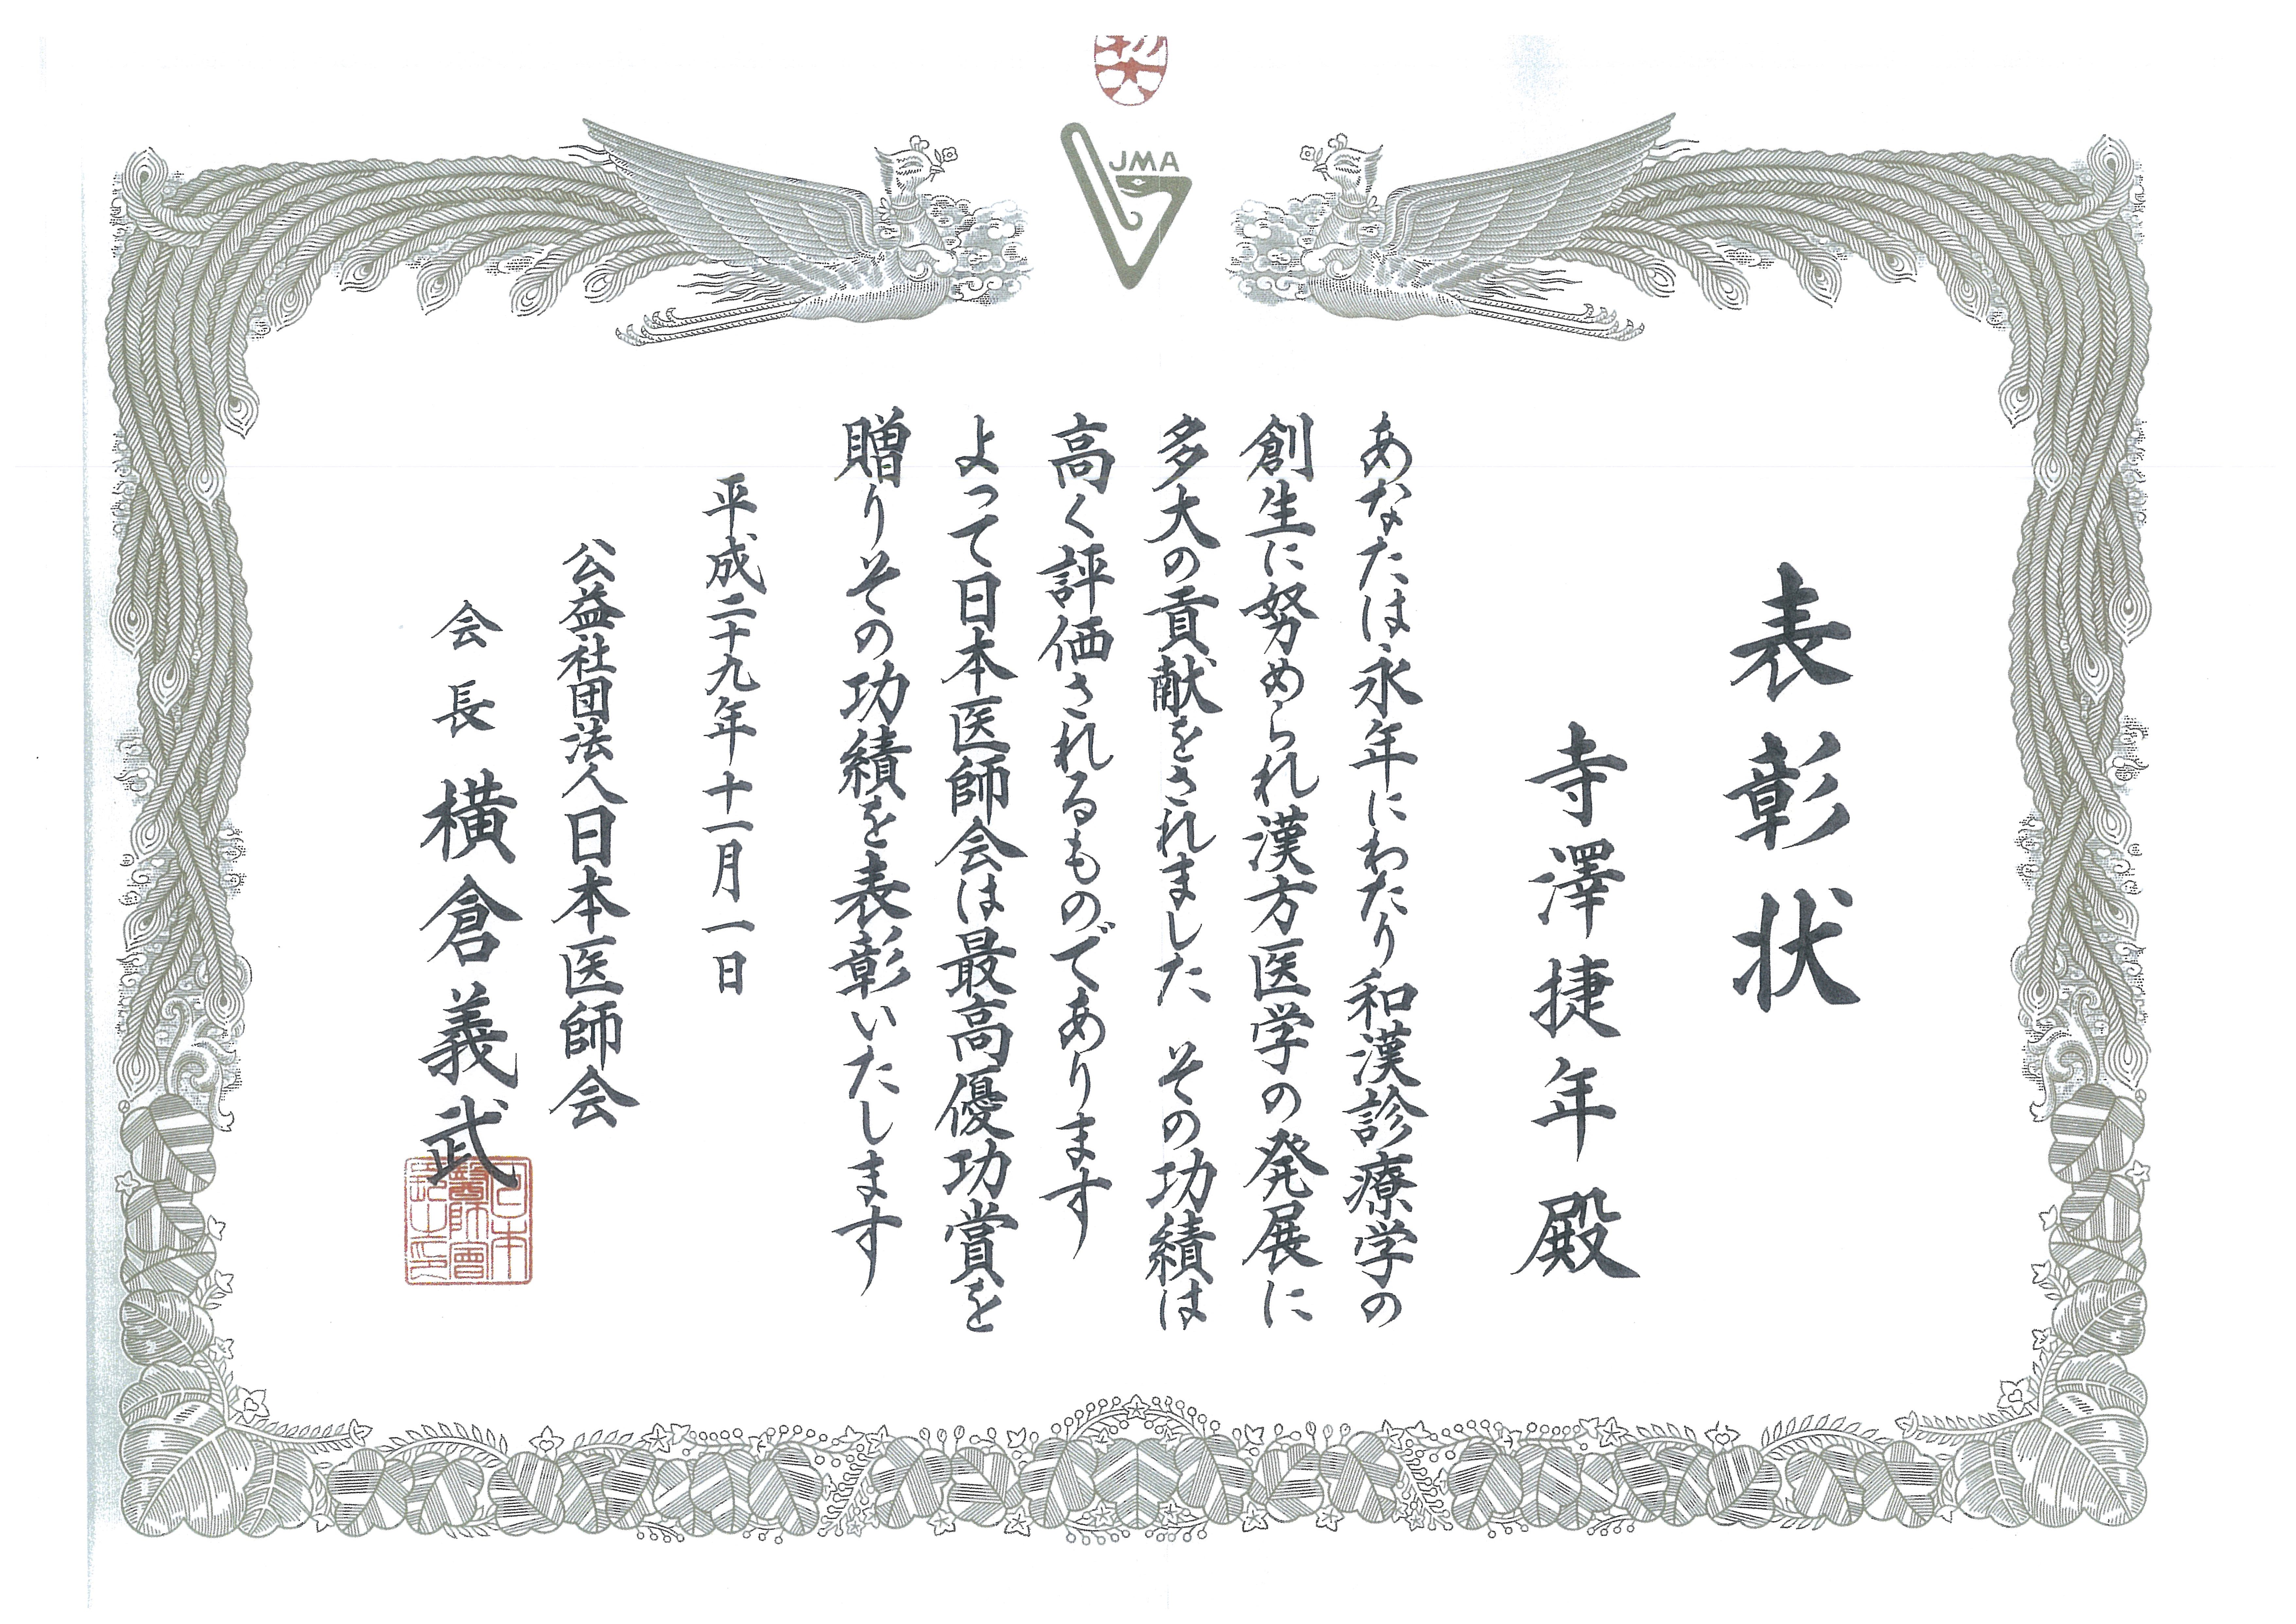 JMA
表彰状
寺澤捷年殿
あなたは永年にわたり和漢診療学の
創生に努められ漢方医学の発展に
多大の貢献をされました　その功績は
高く評価されるものであります
よって日本医師会は最高優功賞を
贈りその功績を表彰いたします
平成二十九年十一月一日
公益社団法人日本医師会
会長　横倉義武
日本
醫師會